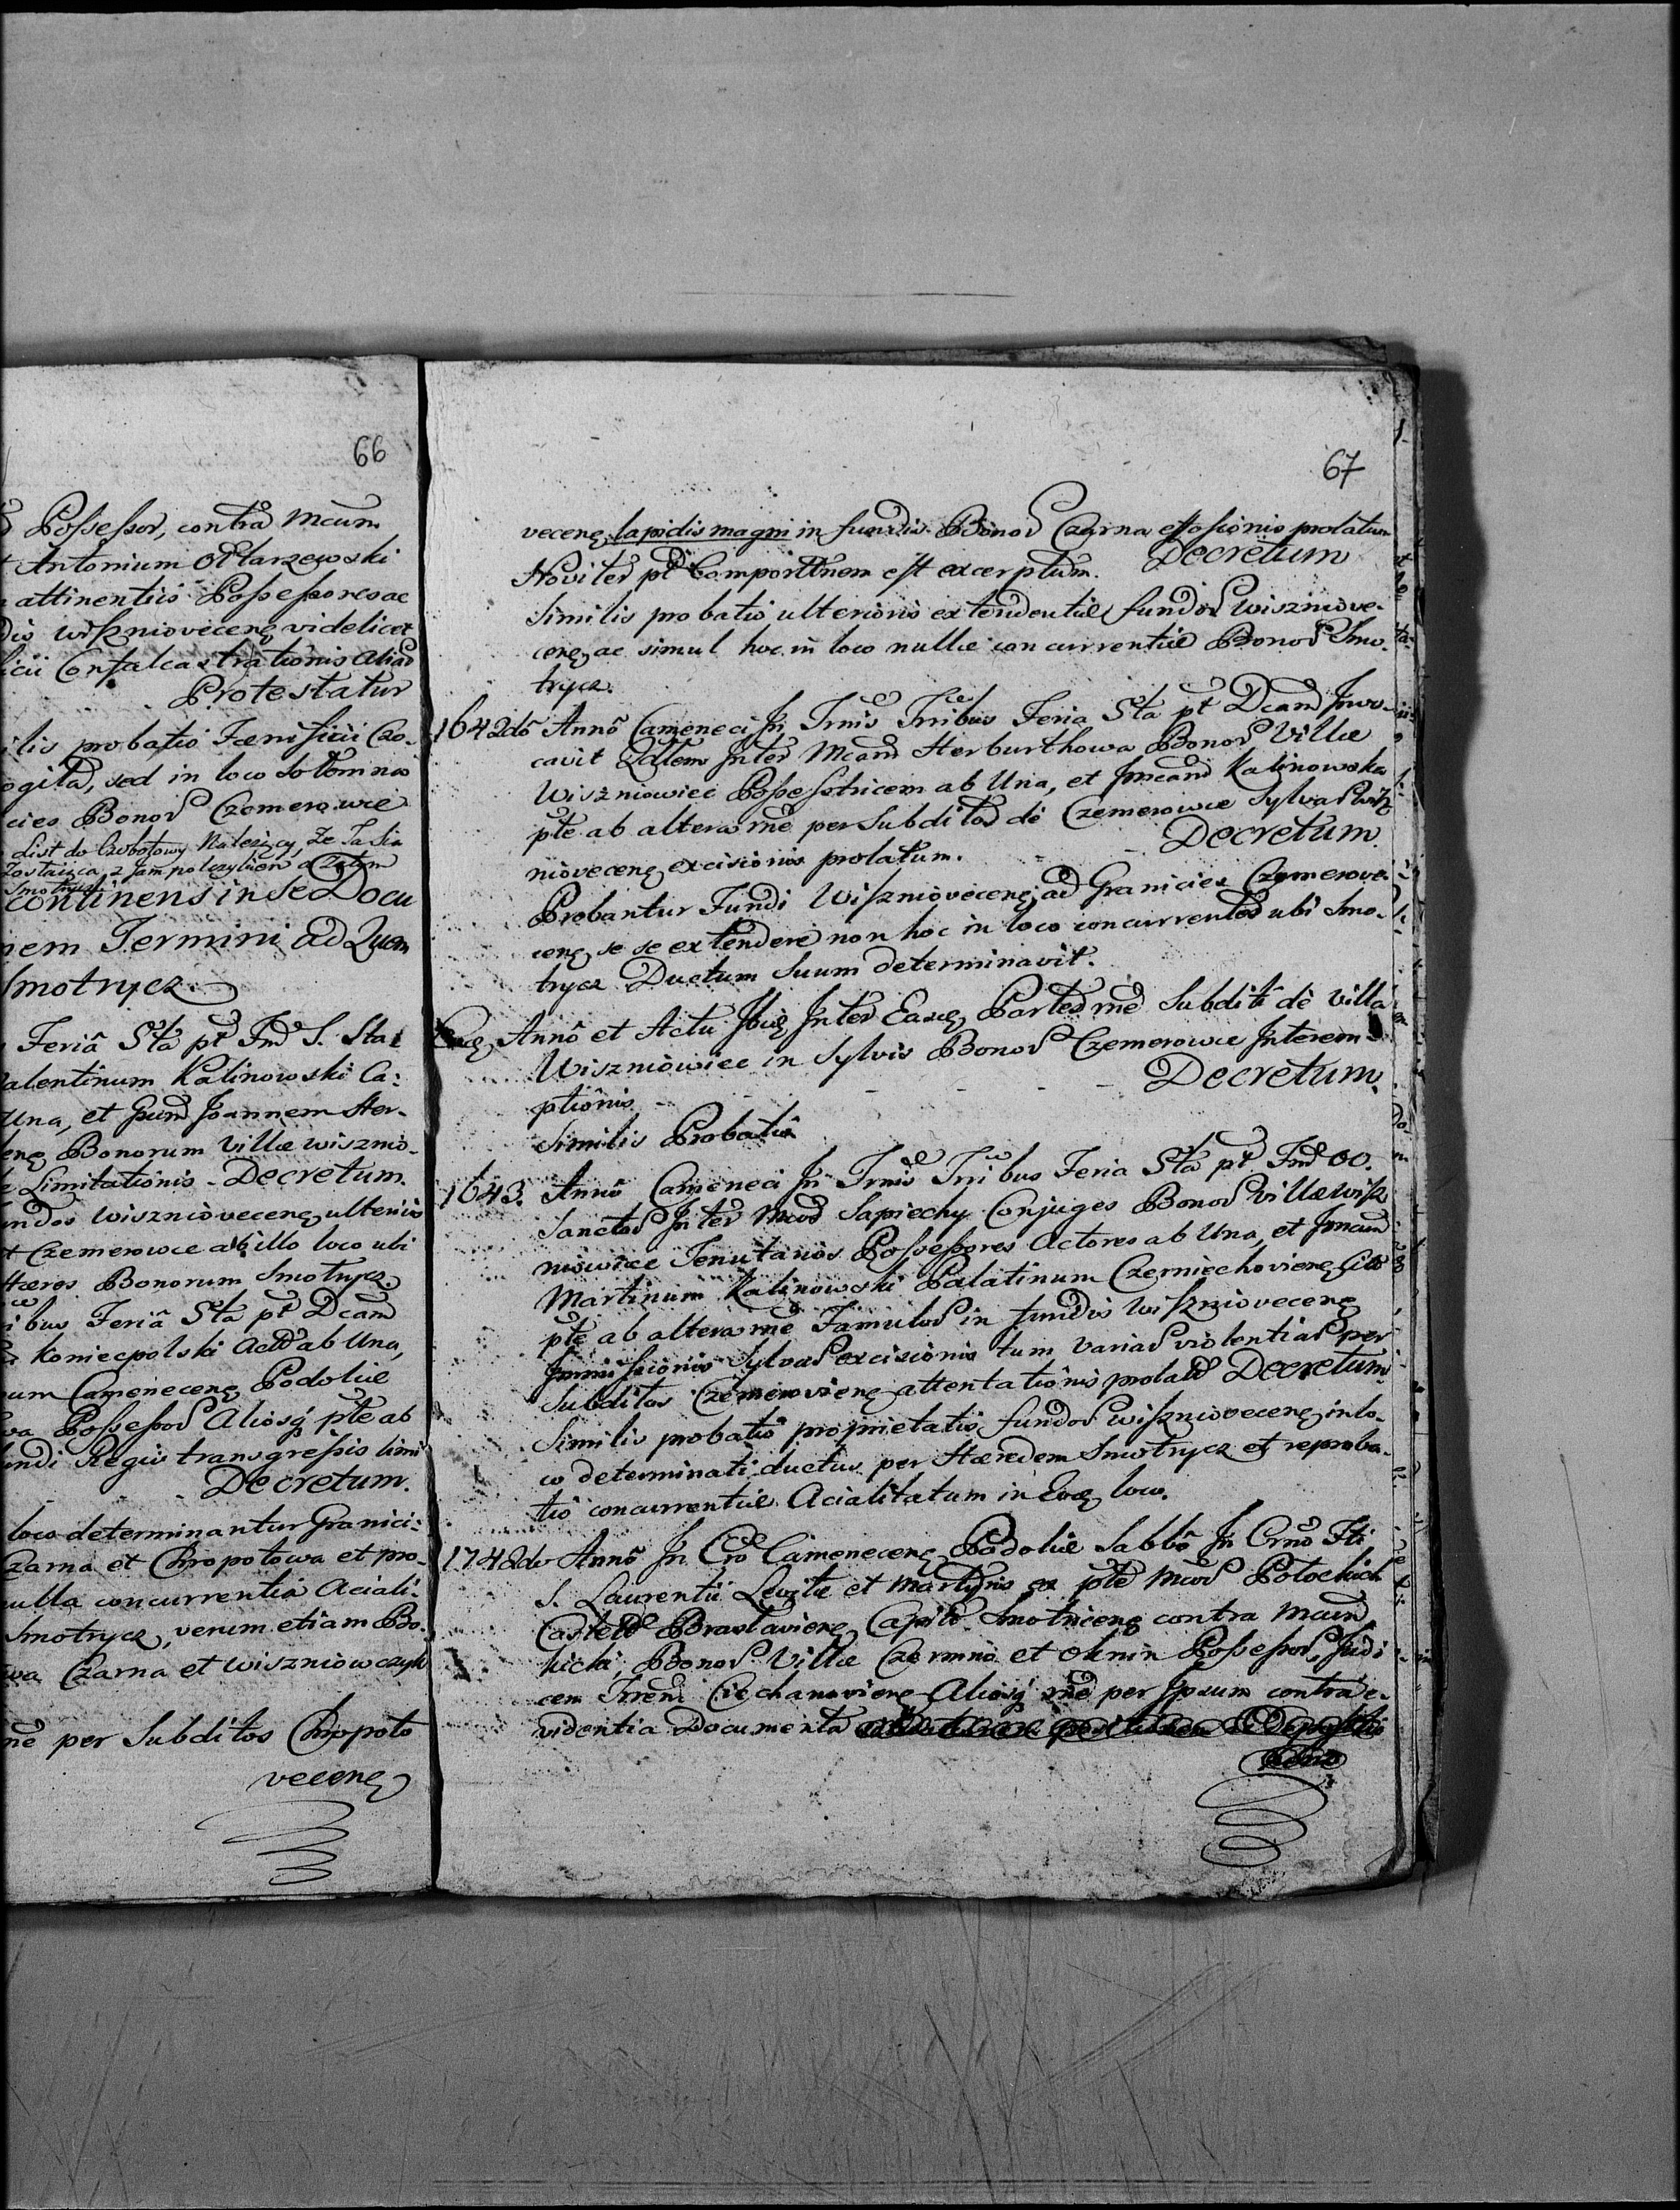 66
Possessor, contra Mcum
Antonium Ottarzewski
attinentiis Possessores ac
dis Wiszniovecens videlicet
icii Confalcastrationis alias
Protestatur
ilis probatio Faenisicii Czo-
ogilas, sed in loco Solomna
cies Bonor Czemerowce
list do Czobotowy Należący, że Ta
zostaiąca z tam a zatym
Smotrycz
continens in se Docu
nem Termini ad Quem
Smotrycz
Feriâ Sta pt Fnd S. Sta
Valentinum Kalinowski Ca-
Una, et Gsum Joannem Her-
ens Bonorum Villæ Wisznio-
Limitationis - Decretum.
undos Wiszniovecens ulterius
t Czemerowce ab illo loco ubi
Hæres Bonorum Smotrycz
ibus Feriâ Sta pt Dcam
Koniecpolski Actd ab Una,
um Camenecens Podoliæ
va Possessor Aliosq pte ab
undi Regii transgressis limi
Decretum.
loco determinantur Granici-
Czarna et Chropotowa et pro-
nulla concurrentia Aciali-
Smotrycz, verum etiam Bo-
wa Czarna et Wiszniowczyk
ne per Subditos Chropoto
vecens
67
vecens lapidis magni in fundis Bonor Czarna effosionis prolatum
Decretum
Noviter pt Comporttnem est excerptum.
Similis probatio ulterioris extendentiæ fundor Wiszniove-
cens ac simul hoc in loco nullæ concurrentiæ Bonor Smo-
trycz.
1642do Annô Cameneci In Trnis Trribus Feria Sta pt Dcam Invo-
cavit Qdtem Inter Mcam Herburthowa Bonor Villæ
Wiszniowiec Possessricem ab Una, et Jmcam Kalinowska
pte ab altera rne per Subditos de Czemerowce Sylvar Wisz
niovecens excisionis prolatum. Decretum.
Probantur Fundi Wiszniovecens ad Granicies Czemerove-
cens se se extendere non hoc in loco concurrentes ubi Smo-
trycz Ductum Suum determinavit.
Eoq Annô et Actu Ibiq Inter Easq Partes rne Subditi de Villa
Wiszniowiec in Sylvis Bonor Czemerowce Interem-
ptionis - - - - Decretum.
Similis Probatio
1643. Annô Cameneci In Trnis Trribus Feria Sta pt Fnd OO.
Sanctor Inter Mcos Sapiechy Conjuges Bonor Villæ Wisz
niowiec Tenutarios Possessores Actores ab Una, et Jmcum
Martinum Kalinowski Palatinum Czerniechoviens
pte ab altera rne Famulos in fundos Wiszniovecens
Immissionis Sylvar excisionis tum varias violentias per
Subditos Czemeroviens attentationis prolatd Decretum.
Similis probatio proprietatis fundor Wiszniovecens in lo-
co determinati ductus per Hæredem Smotrycz et reproba-
tio concurrentiæ Acialitatum in Eoq loco.
1748do Annô In Cro Camenecens Podoliæ Sabbô In Crno Fti
S. Laurentii Levitæ et Martyris ex pte Mcor Potockich
Castelld Braclaviens Capitd Smotricens contra Mcum
kicki, Bonor Villæ Czermno et Oknin Possessor, Judi
cem Trrem Ciechanoviens Aliosq rne per Ipsum contra e-
videntia Documenta